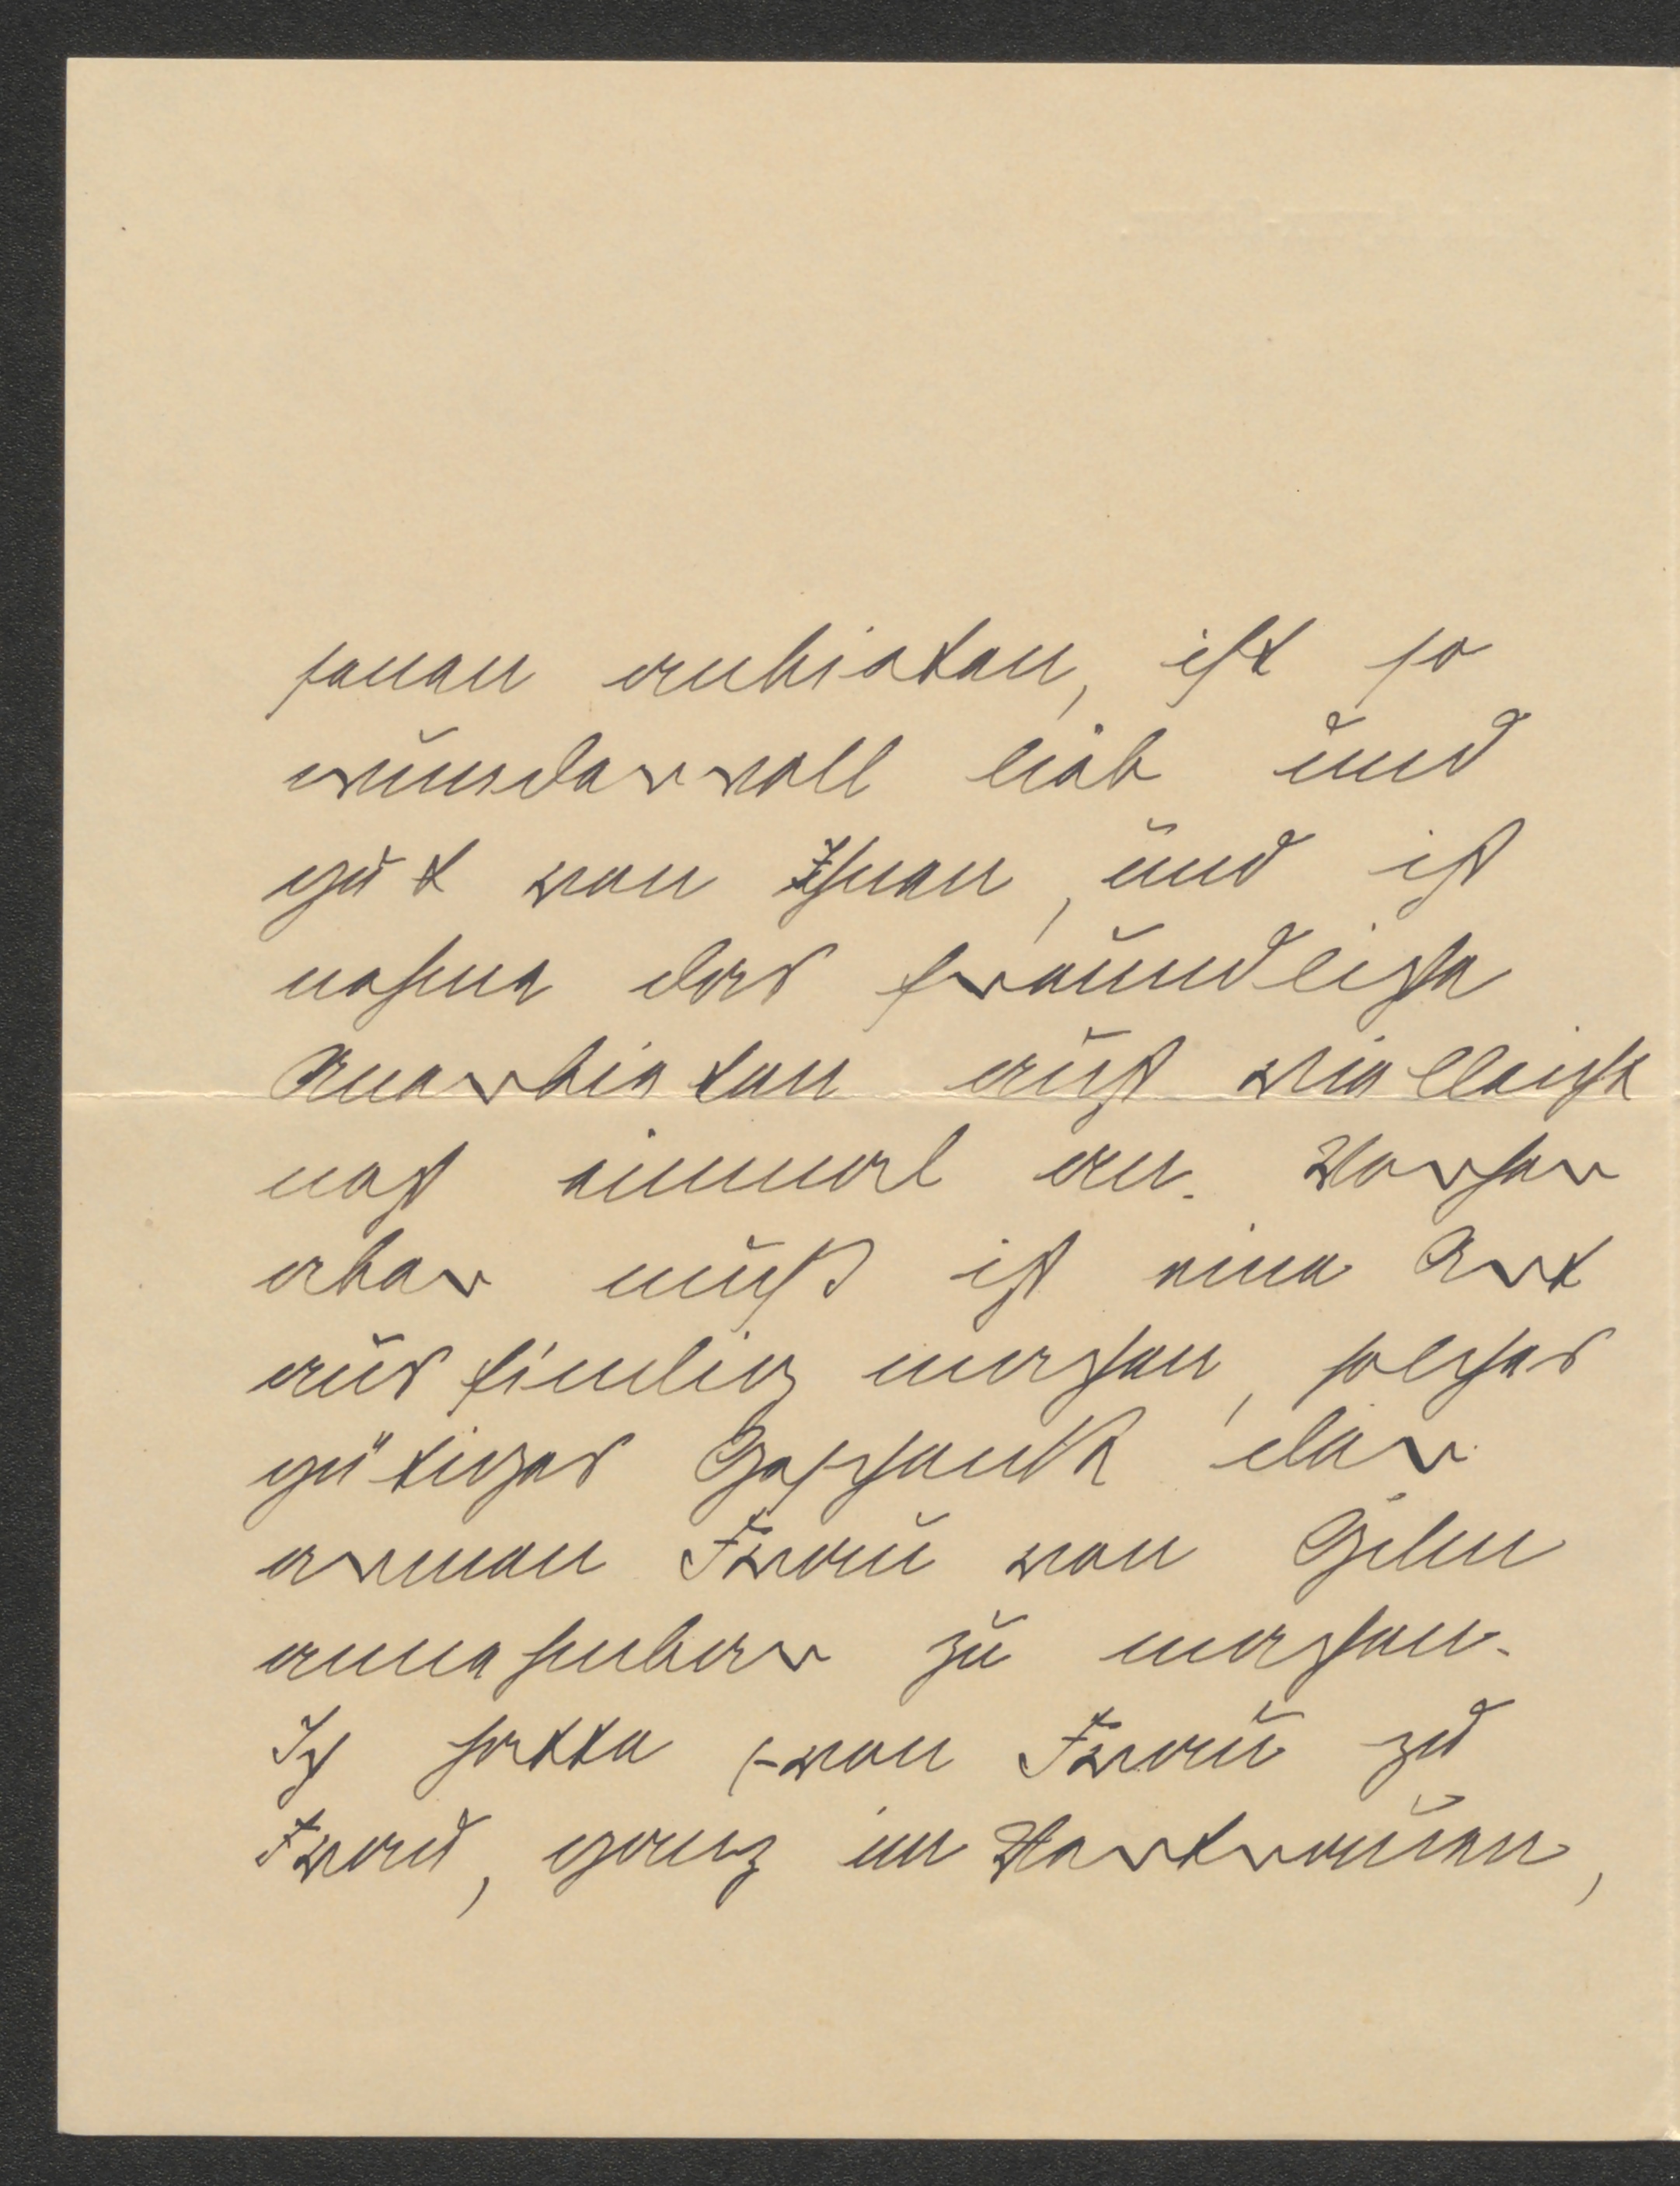 jenen anbieten, ist so
wundervoll lieb und
gut von Ihnen, und ich
nehme das freundliche
Anerbieten auch vielleicht
noch einmal an. Vorher
aber muß ich eine Art
ausfindig machen, solches
gütiges Geschenk der
armen Frau von Gilm
annehmbar zu machen.
Ich hatte (-von Frau zu
Frau, ganz im Vertrauen,